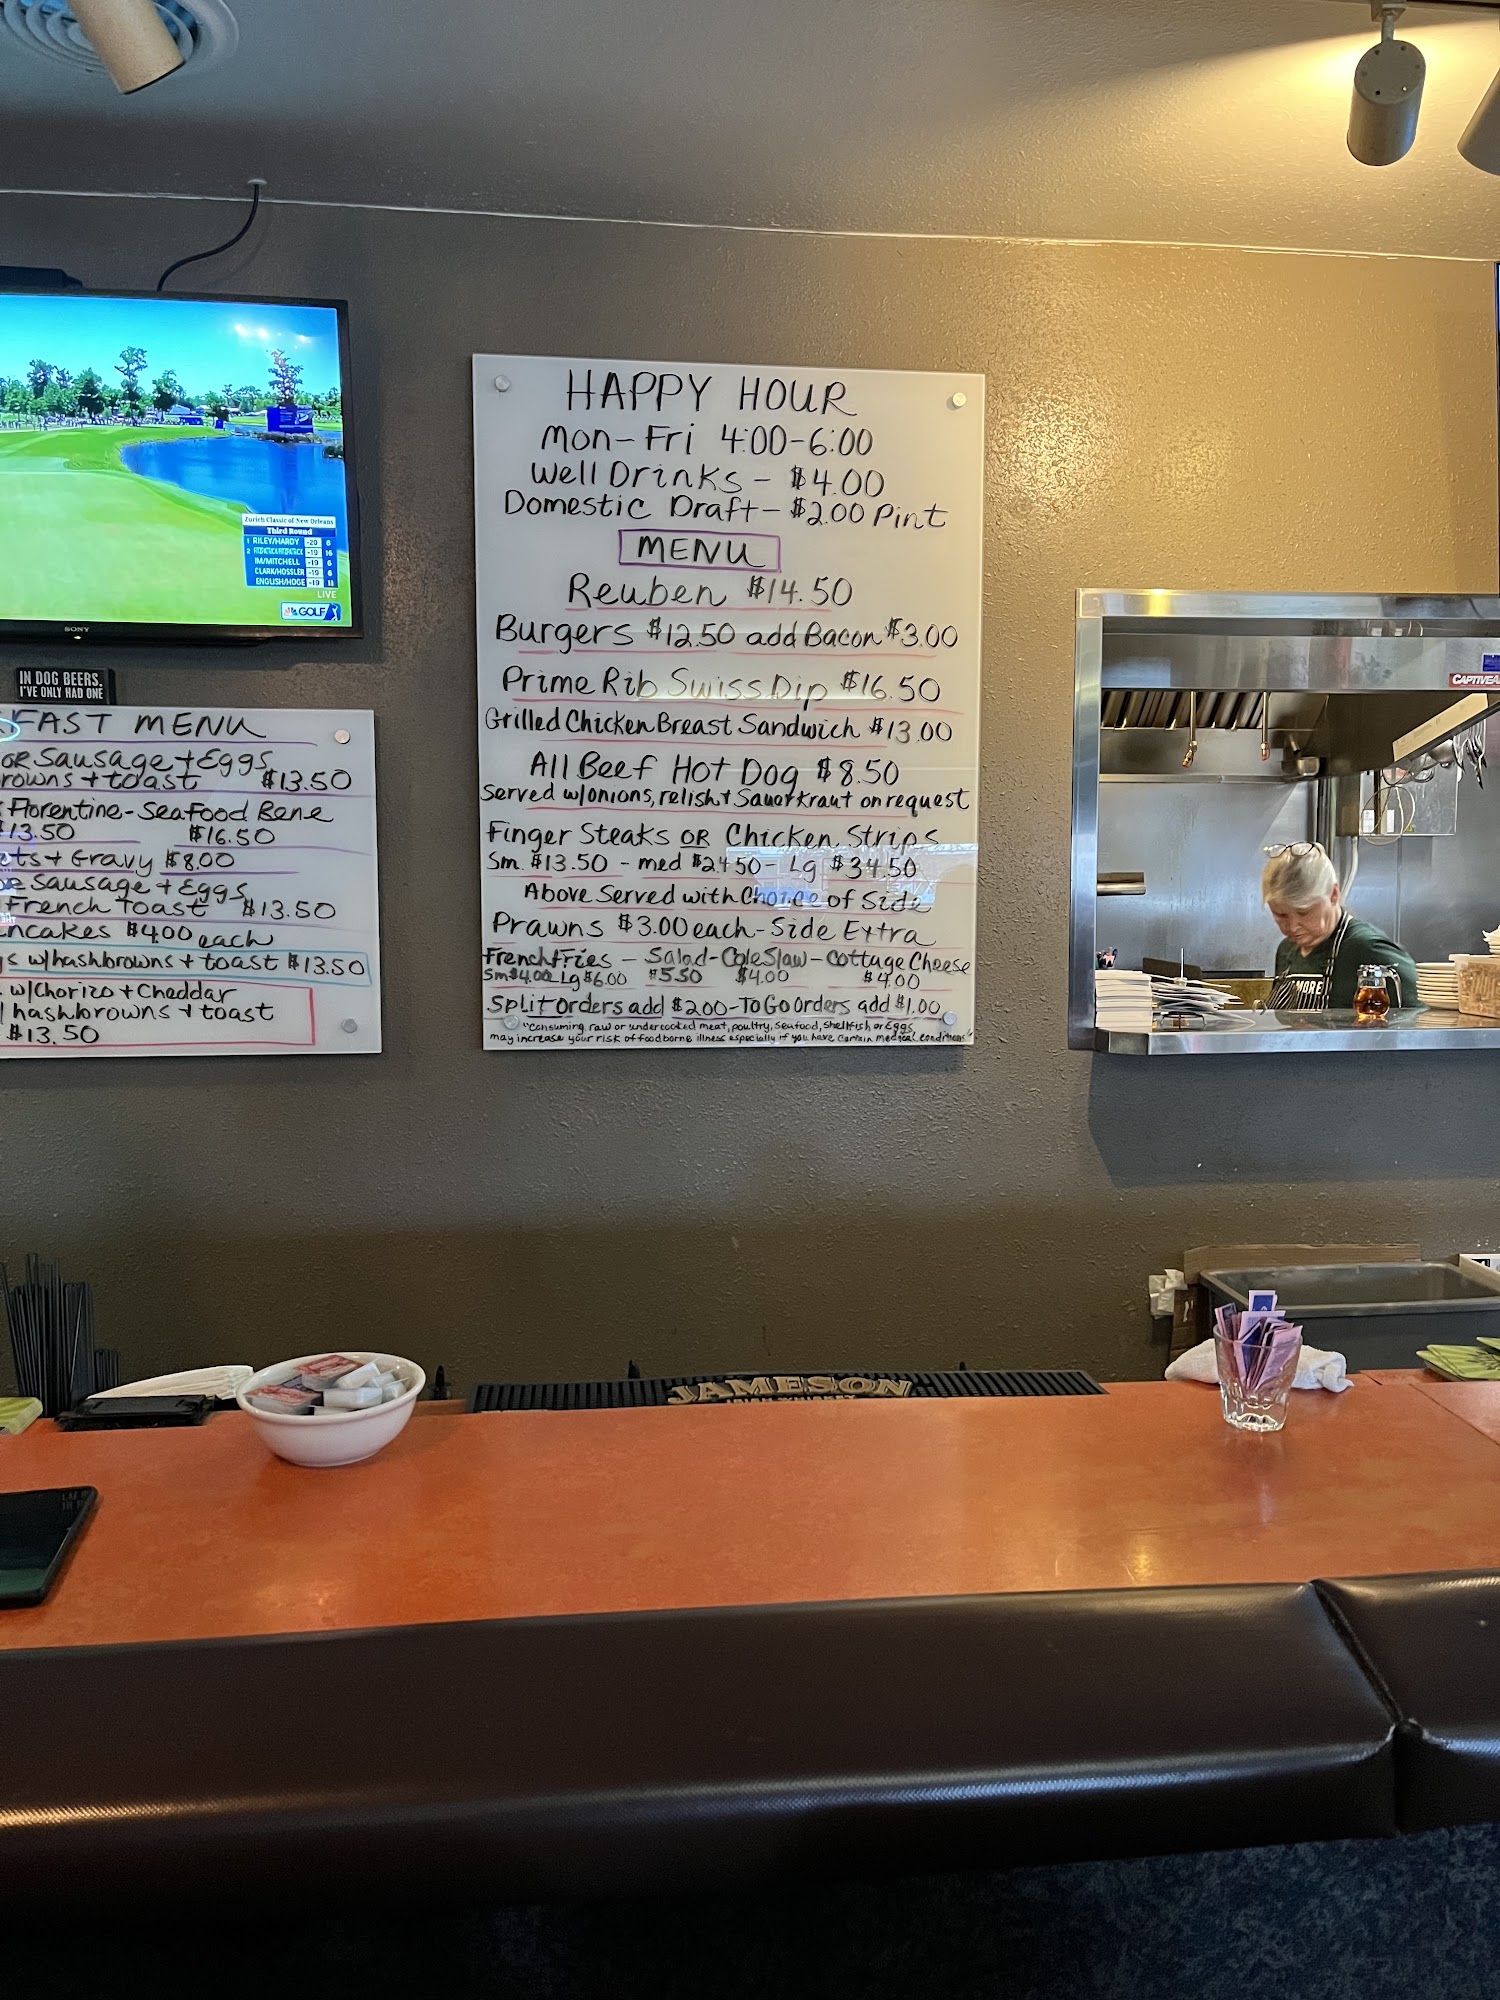 HAPPY HOUR
Mon-Fri 4:00-6:00
Well Drinks - $4.00
Domestic Draft - $2.00 Pint
MENU
Reuben $14.50
Burgers $12.50 add Bacon $3.00
Prime Rib Swiss Dip $16.50
Grilled Chicken Breast Sandwich $13.00
All Beef Hot Dog $8.50
Served w/onions, relish + Sauerkraut on request
Finger Steaks OR Chicken Strips
Sm. $13.50 - med $24.50 - Lg $34.50
Above Served with Choice of Side
Prawns $3.00 each - Side Extra
French Fries - Salad - Cole Slaw - Cottage Cheese
Sm $4.00 Lg $6.00 $5.50 $4.00 $4.00
Split Orders add $2.00 - To Go Orders add $1.00
"Consuming raw or undercooked meat, poultry, Seafood, Shellfish or Eggs
may increase your risk of foodborne illness especially if you have certain medical conditions"
Zurich Classic of New Orleans
Third Round
1 RILEY/HARDY -20 6
2 FITZPATRICK/FITZPATRICK -19 16
IM/MITCHELL -19 6
CLARK/HOSSLER -19 6
ENGLISH/HOGE -19 11
LIVE
GOLF
SONY
IN DOG BEERS,
I'VE ONLY HAD ONE
FAST MENU
OR Sausage + Eggs
rowns + toast $13.50
Florentine - Seafood Bene
$13.50 $16.50
ets + Gravy $8.00
OR Sausage + Eggs
French Toast $13.50
ncakes $4.00 each
s w/hashbrowns + toast $13.50
w/Chorizo + Cheddar
hashbrowns + toast
$13.50
CAPTIVE
MORE
JAMESON